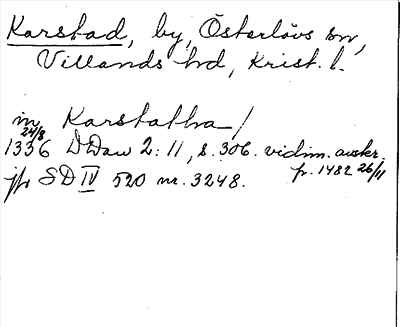 Karstad, by, Österlövs sn,
Villands hd, Krist. l.
in Karstatha /
24/8
1336 DDan 2: 11, s. 306. vidim. avskr.
fr. 1482 26/11
jfr SD IV 520 nr. 3248.